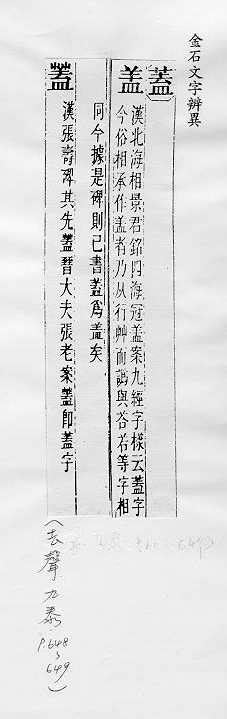 金石文字辨異
蓋
盖 漢北海相景君銘四海冠盖案九經字樣云蓋字
今俗相承作盖者乃从行艸而譌與荅若等字相
同今據是碑則已書蓋爲盖矣
蓋 漢張壽碑其先蓋晉大夫張老案蓋即蓋字
(去聲 九泰 P.648
649)